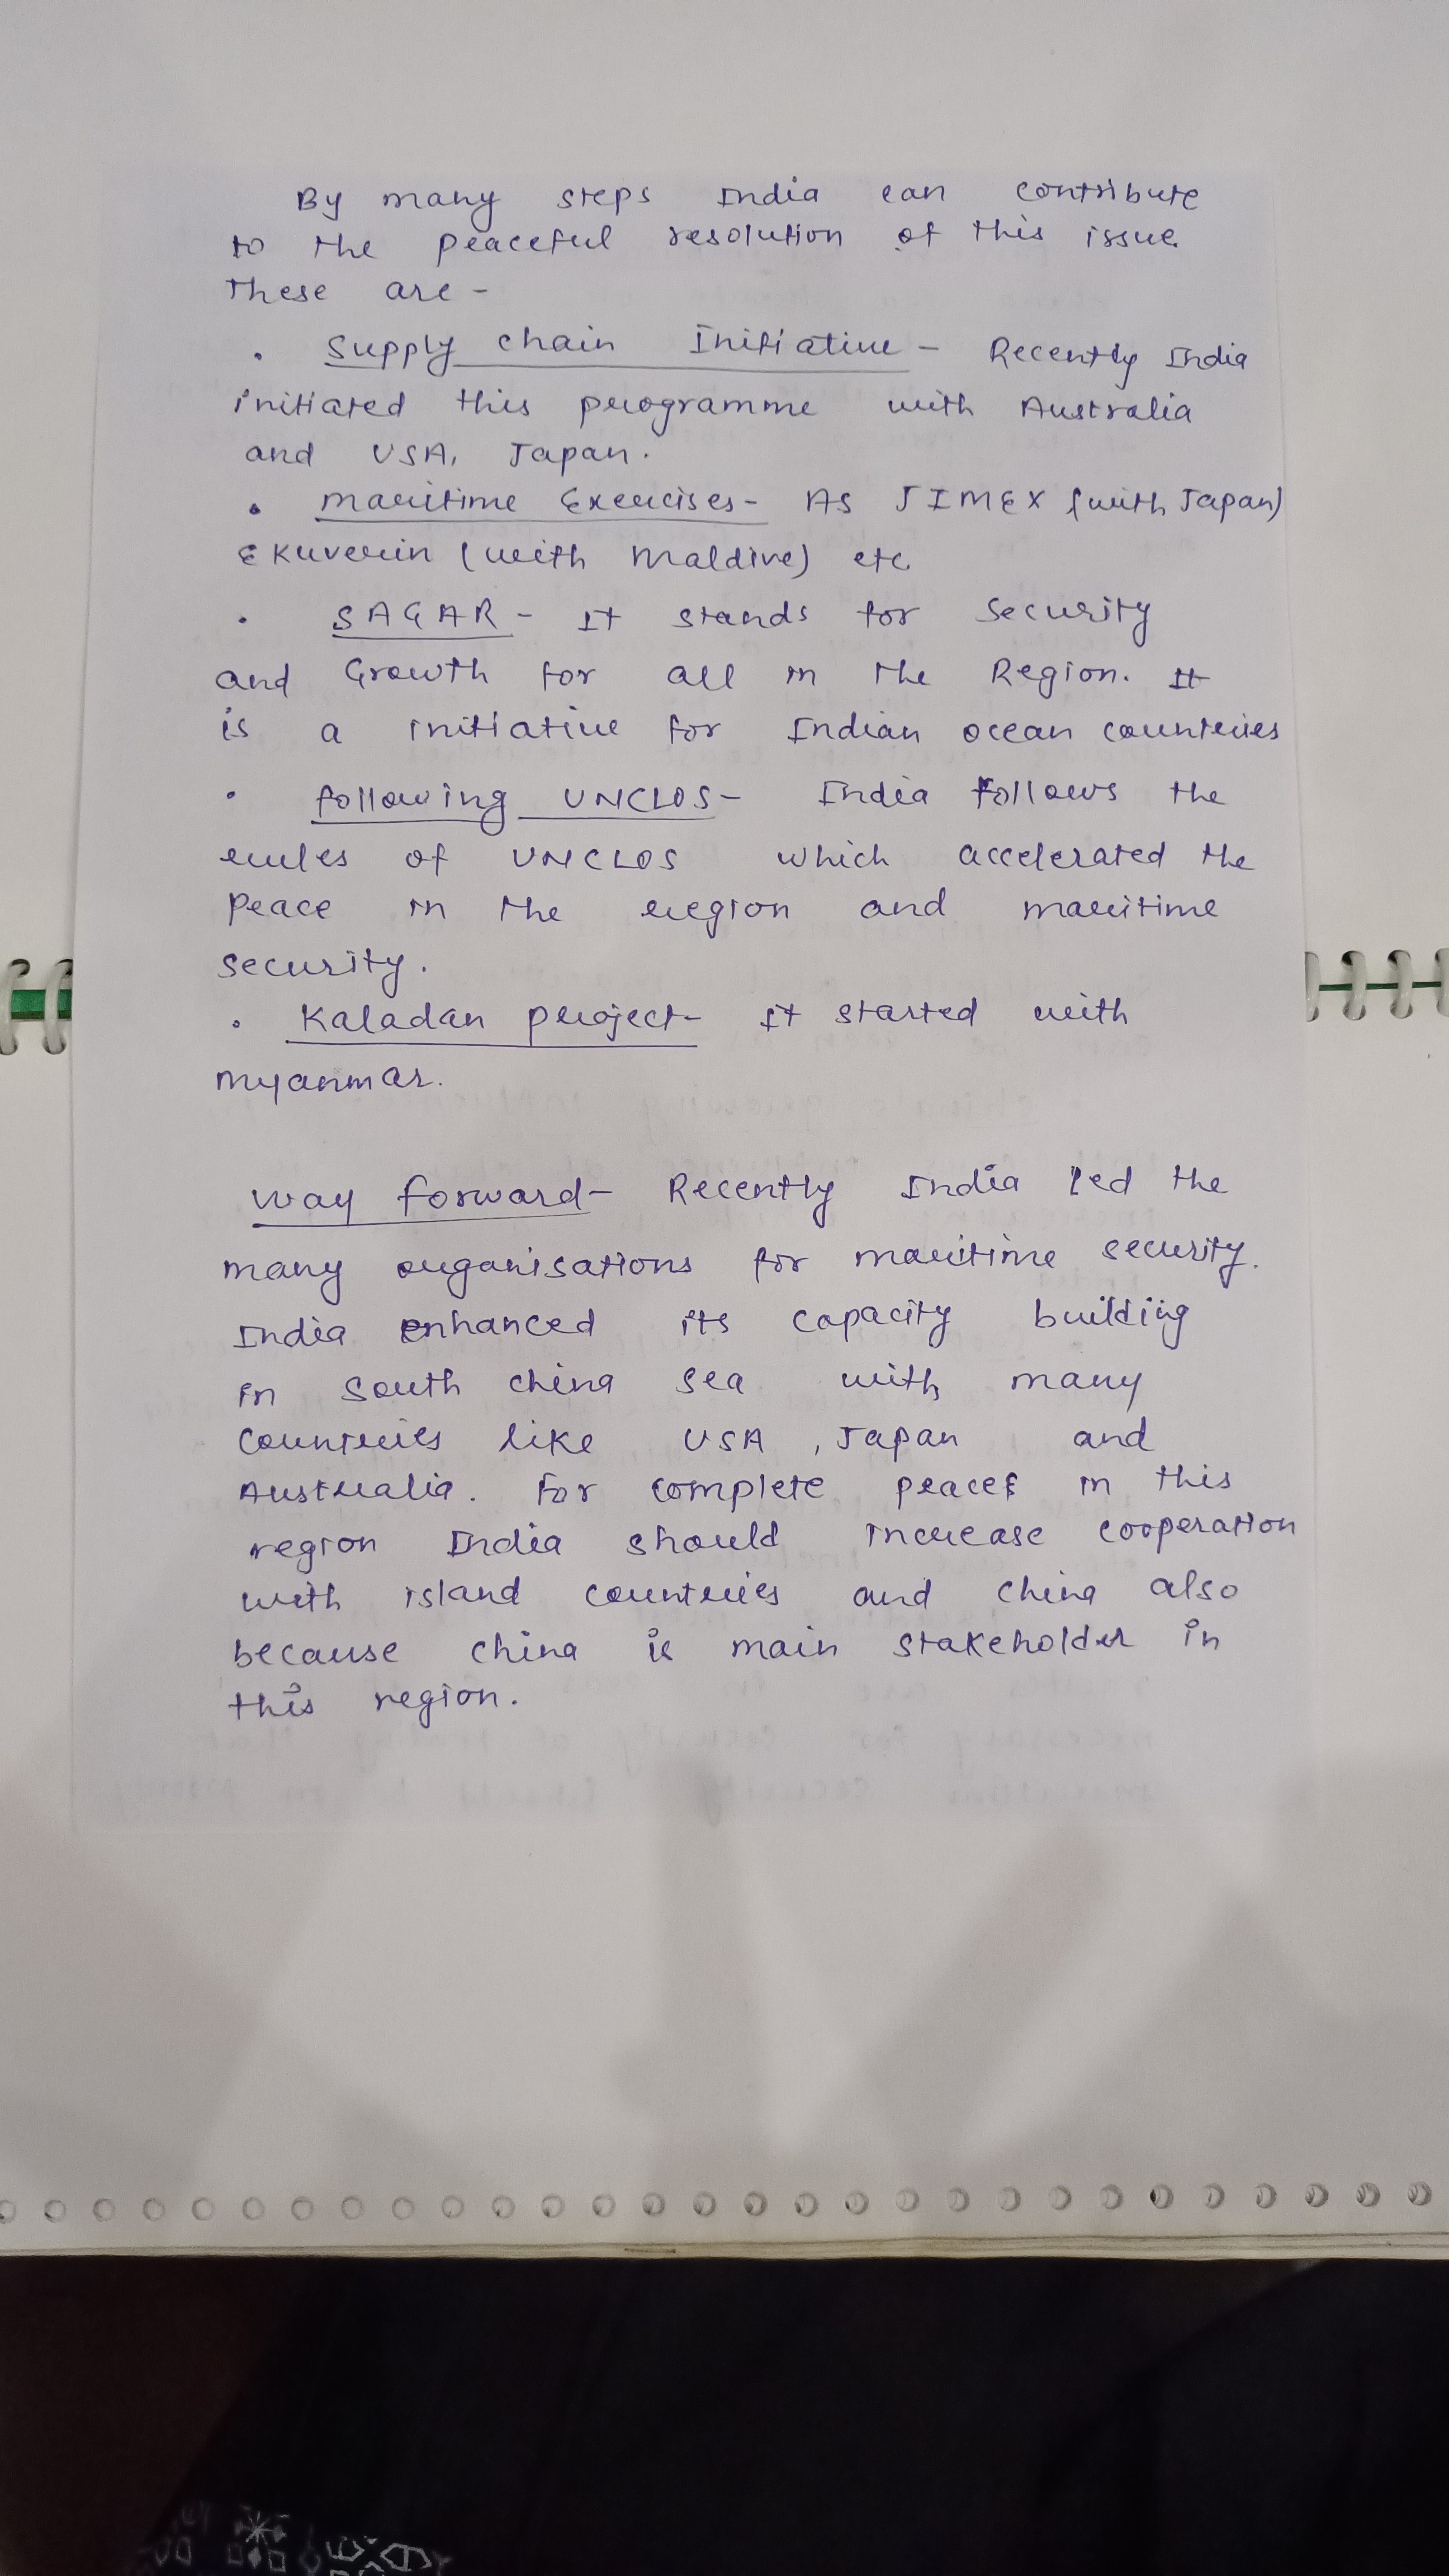 By many steps India can contribute
to the peaceful resolution of this issue.
These are -
• Supply chain Initiative - Recently India
initiated this programme with Australia
and USA, Japan.
• Maritime Exercises - As JIMEX (with Japan)
Ekuverin (with Maldive) etc.
• SAGAR - It stands for Security
and Growth for all in the Region. It
is a initiative for Indian ocean countries
• following UNCLOS - India follows the
rules of UNCLOS which accelerated the
peace in the region and maritime
security.
• Kaladan project - It started with
Myanmar.
Way forward - Recently India led the
many organisations for maritime security.
India enhanced its capacity building
in South china sea with many
countries like USA, Japan and
Australia. For complete peace in this
region India should increase cooperation
with island countries and china also
because china is main stakeholder in
this region.